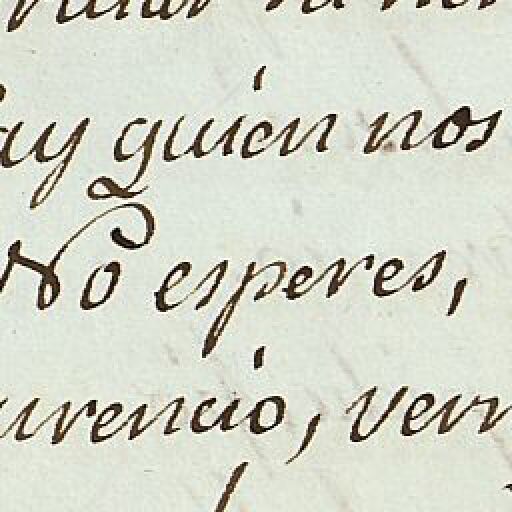 ay quien nos
No esperes,
urencio, verm